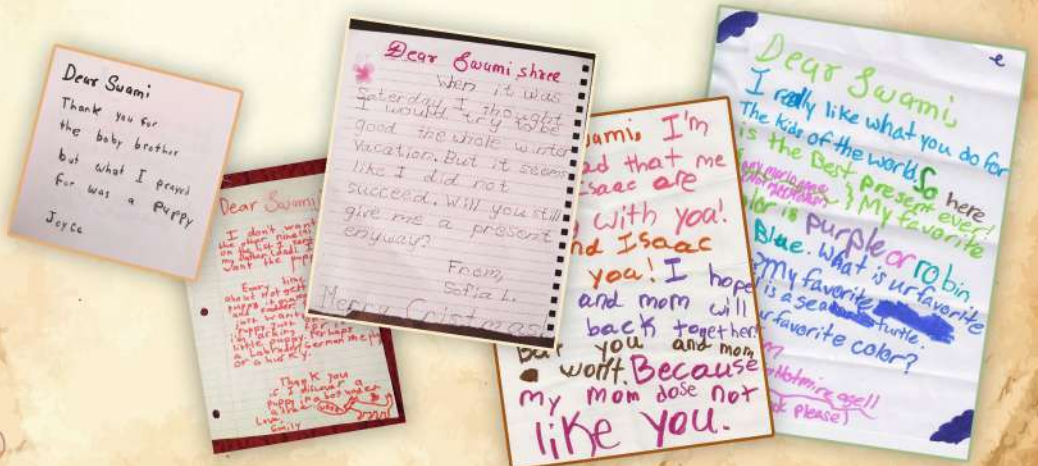 Dear Swami
Thank you for
the baby brother
but what I prayed
for was a puppy
Joyce
Dear Swami
I don't want
the other
on the list I
my father
want the
Every time
about not
puppy
and
just want
puppy just
i'm asking for
little puppy. Perhaps
a Labrador, German
or a husky.
Thank you
if I discover a
puppy in a box under
Love,
Emily
Dear Swami shree
When it was
Saterday I thought
I would try to be
good the whole winter
vacation. But it seems
like I did not
succeed. Will you still
give me a present
enyway?
From,
Sofia L.
Merry Cristmas
wami, I'm
ad that me
Isaac are
with you!
nd Isaac
you! I hope
and mom will
back together
But you and mom
wont. Because
my mom dose not
like you.
Dear Swami,
I really like what you do for
The kids of the world. So here
is the Best present ever!
My favorite
lor is purple or robin
Blue. What is ur favorite
? My favorite
is a sea turtle.
ur favorite color?
please)